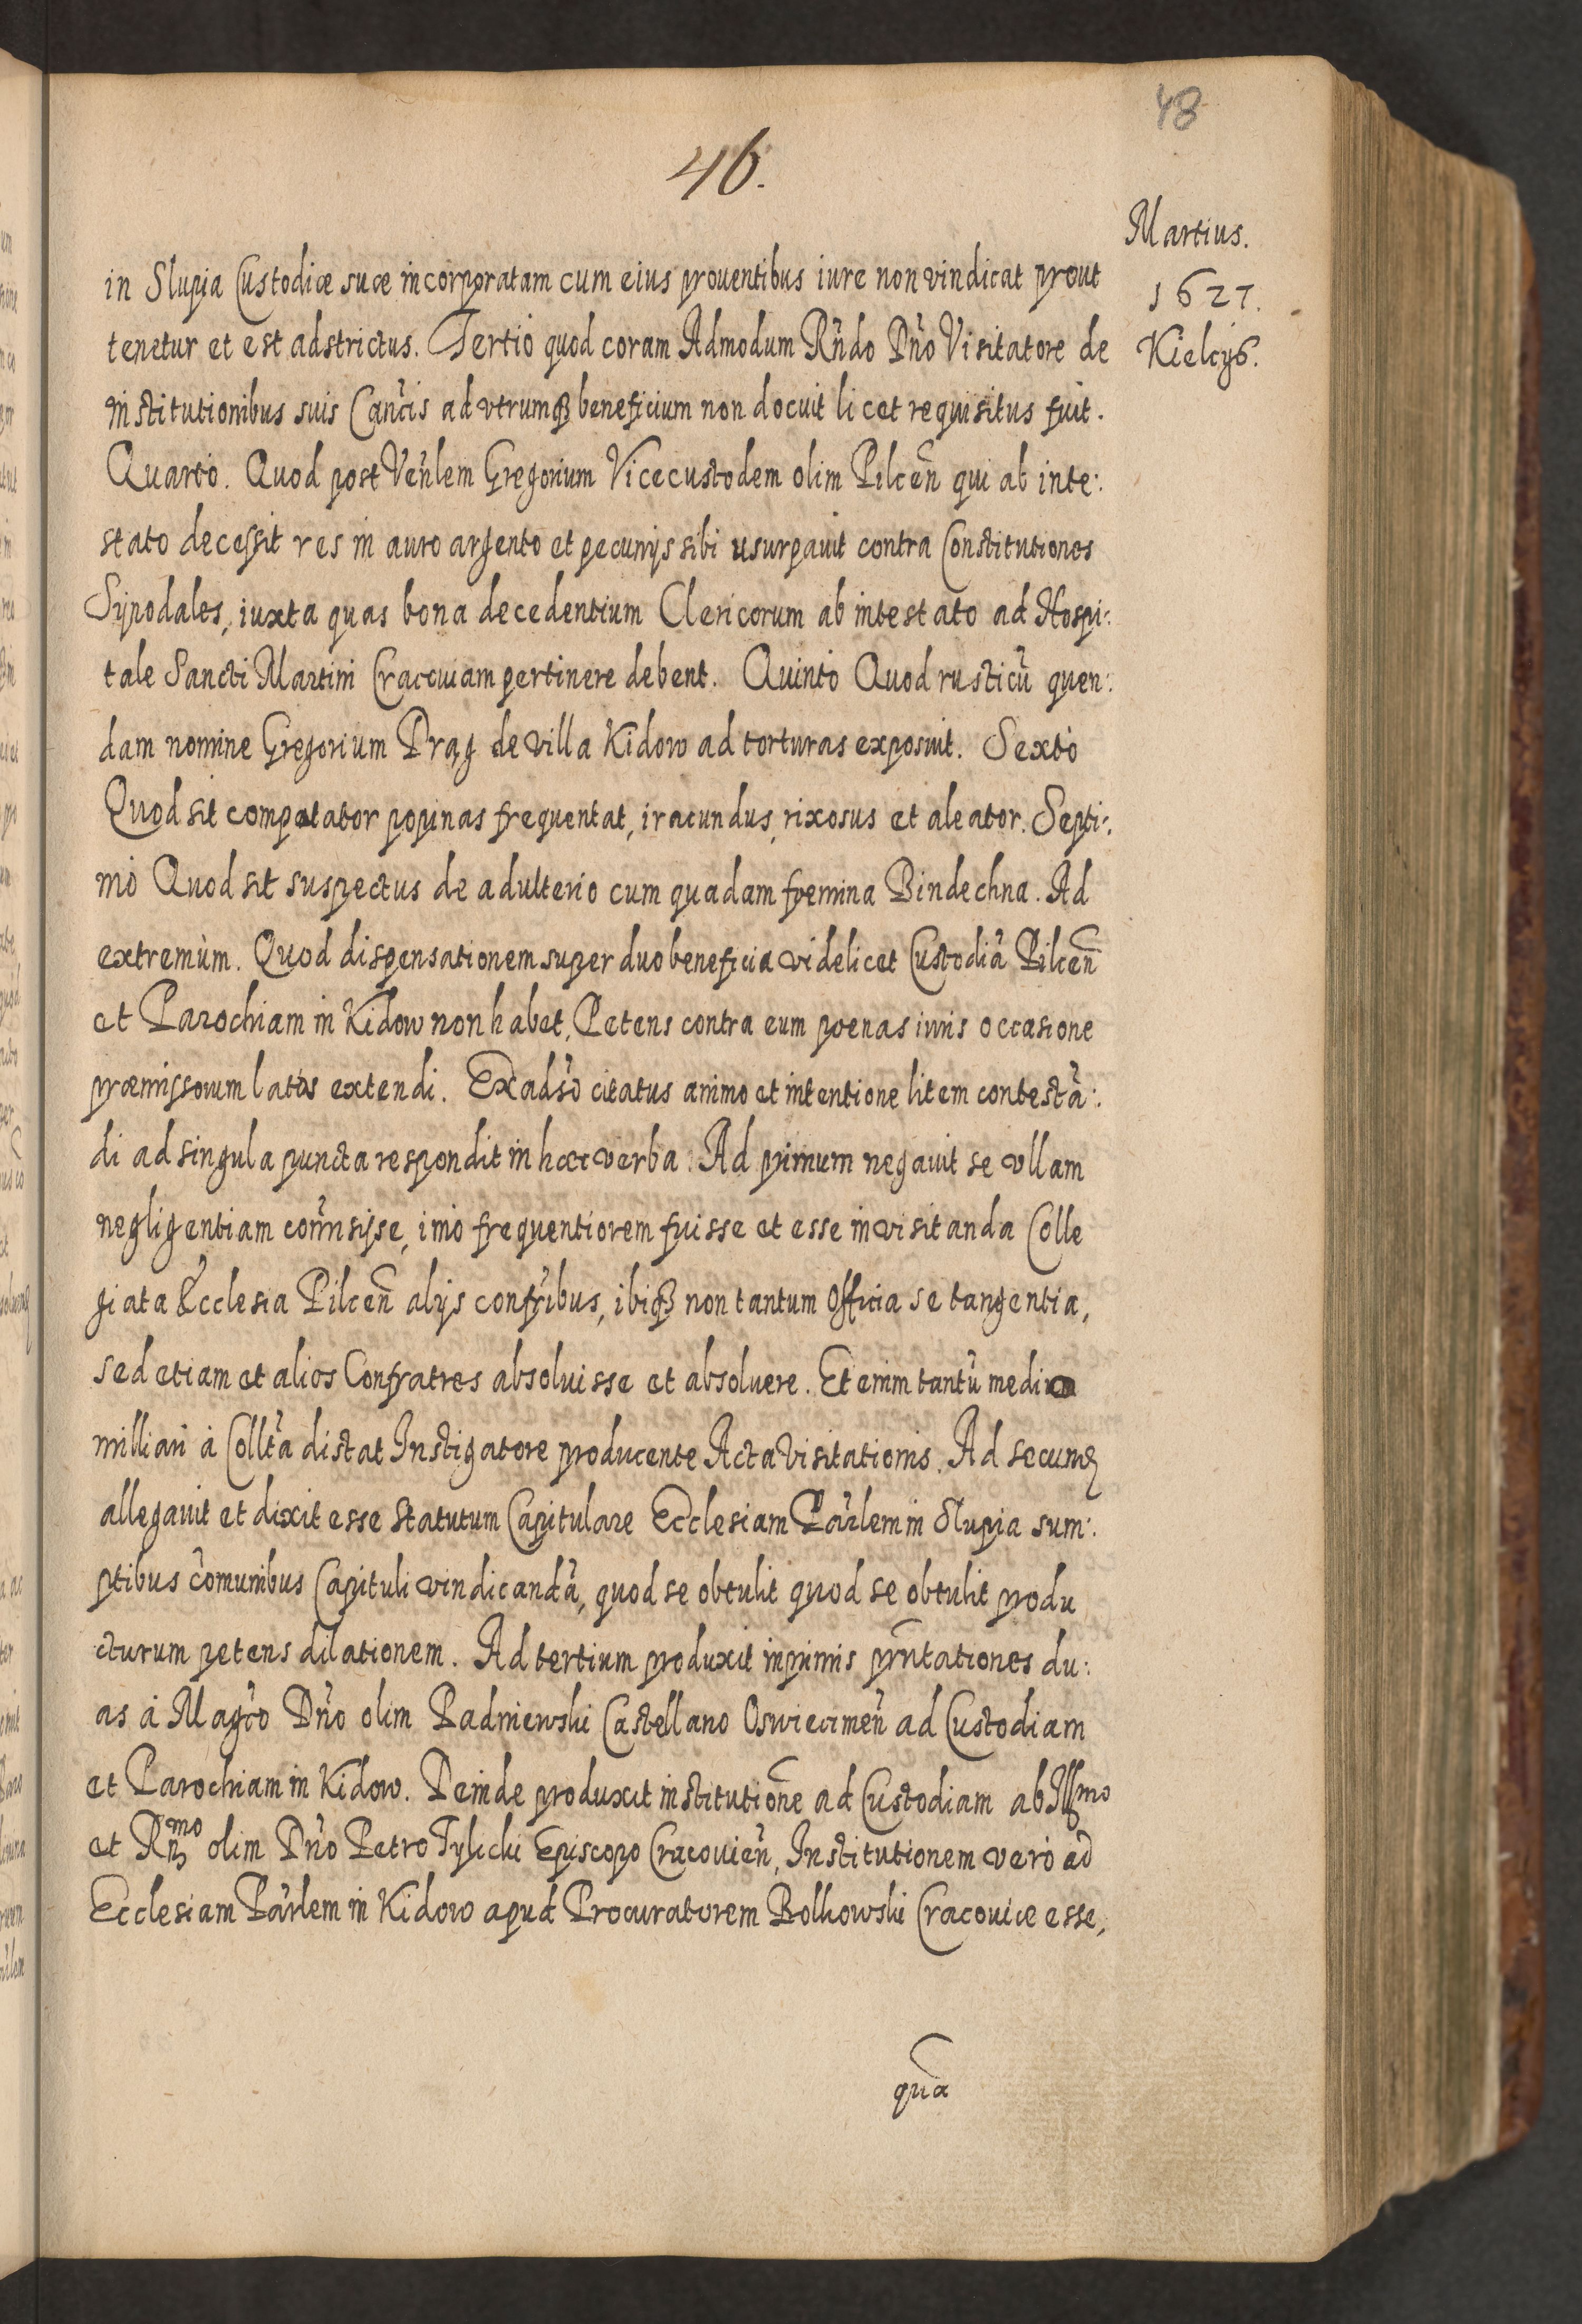 48
46.
Martius.
1627.
Kielcijs.
in Slupia Custodiæ suæ incorporatam cum eius prouentibus iure non vindicat prout
tenetur et est adstrictus. Tertio quod coram Admodum Rñdo Dño Visitatore de
institutionibus suis Cancis ad vtrumqꝫ beneficium non docuit licet requisitus fuit.
Quarto. Quod post Veñlem Gregorium Vicecustodem olim Pilceñ qui ab inte:
stato decessit res in auro argento et pecunijs sibi usurpauit contra Constitutiones
Synodales, iuxta quas bona decedentium Clericorum ab intestato ad Hospi:
tale Sancti Martini Cracouiam pertinere debent. Quinto Quod rusticũ quen:
dam nomine Gregorium Drąg de villa Kidow ad torturas exposuit. Sexto
Quod sit compotator popinas frequentat, iracundus, rixosus et aleator. Septi:
mò Quod sit suspectus de adulterio cum quadam fœmina Bindechna. Ad
extremùm. Quod dispensationem super duo beneficia videlicet Custodiã Pilceñ
et Parochiam in Kidow non habet, Petens contra eum pœnas iuris occasione
præmissorum latas extendi. Ex adsõ citatus animo et intentione litem contestã:
di ad singula puncta respondit in hæc verba. Ad primum negauit se vllam
negligentiam com̃isisse, imò frequentiorem fuisse et esse in visitanda Colle
giata Ecclesia Pilceñ alijs confr̃ibus, ibiqꝫ non tantum Officia se tangentia,
sed etiam et alios Confratres absoluisse et absoluere. Etenim tantũ medio
milliari à Collta distat Instigatore producente Acta Visitationis. Ad secund
allegauit et dixit esse Statutum Capitulare Ecclesiam Parlem in Slupia sum:
ptibus com̃unibus Capituli vindicandã, quod se obtulit quod se obtulit produ
cturum petens dilationem. Ad tertium produxit inprimis prñtationes du:
as à Magco Dño olim Padniewski Castellano Oswiecimeñ ad Custodiam
et Parochiam in Kidow. Deinde produxit institutionẽ ad Custodiam ab Illmo
et Rñmo olim Dño Petro Tylicki Episcopo Cracouieñ, Institutionem verò ad
Ecclesiam Parlem in Kidow apud Procuratorem Bolkowski Cracouiæ esse,
quã